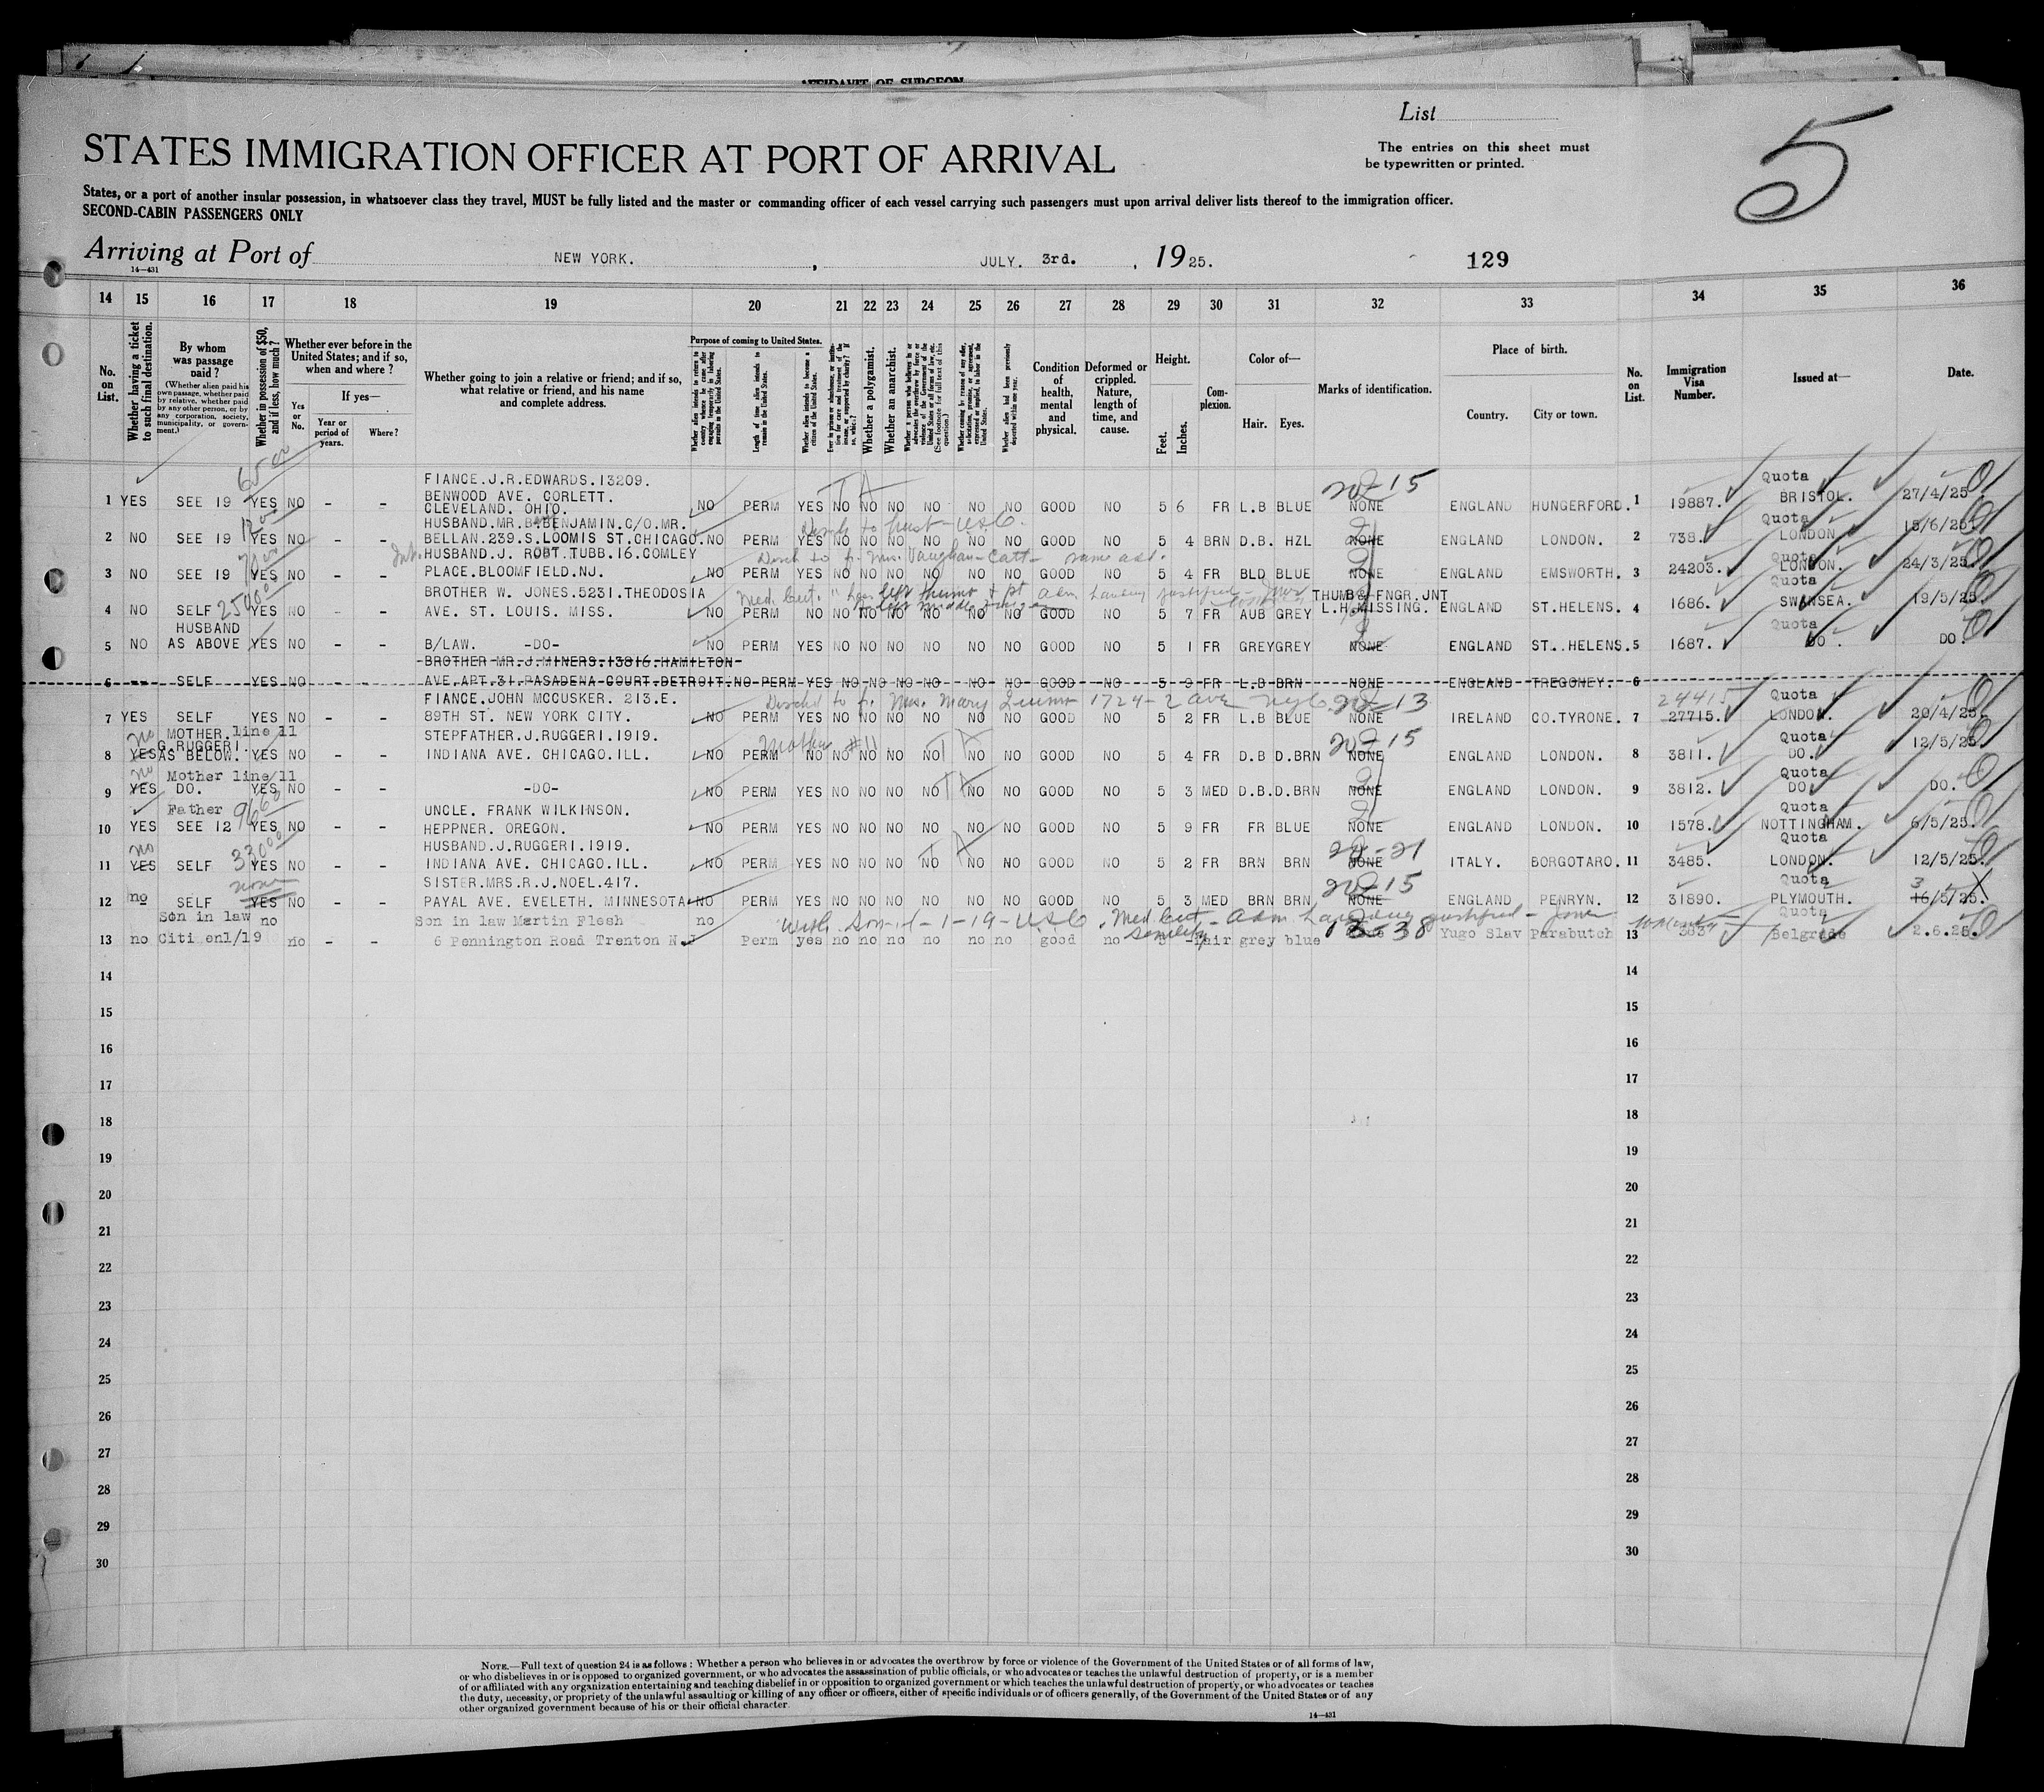 AFFIDAVIT OF SURGEON
List
5
STATES IMMIGRATION OFFICER AT PORT OF ARRIVAL
The entries on this sheet must
be typewritten or printed.
States, or a port of another insular possession, in whatsoever class they travel, MUST be fully listed and the master or commanding officer of each vessel carrying such passengers must upon arrival deliver lists thereof to the immigration officer.
SECOND-CABIN PASSENGERS ONLY
Arriving at Port of NEW YORK. , JULY. 3rd. , 1925. 129
14—431
14 15 16 17 18 19 20 21 22 23 24 25 26 27 28 29 30 31 32 33 34 35 36
No. on List.
Whether having a ticket to such final destination.
By whom was passage paid?
(Whether alien paid his own passage, whether paid by relative, whether paid by any other person, or by any corporation, society, municipality, or government.)
Whether in possession of $50, and if less, how much?
Whether ever before in the United States; and if so, when and where?
Yes or No.
If yes—
Year or period of years.
Where?
Whether going to join a relative or friend; and if so, what relative or friend, and his name and complete address.
Purpose of coming to United States.
Whether alien intends to return to country whence he came after engaging temporarily in laboring pursuits in the United States.
Length of time alien intends to remain in the United States.
Whether alien intends to become a citizen of the United States.
Ever in prison or almshouse, or institution for care and treatment of the insane, or supported by charity? If so, which?
Whether a polygamist.
Whether an anarchist.
Whether a person who believes in or advocates the overthrow by force or violence of the Government of the United States or all forms of law, etc. (See footnote for full text of this question.)
Whether coming by reason of any offer, solicitation, promise, or agreement, expressed or implied, to labor in the United States.
Whether alien had been previously deported within one year.
Condition of health, mental and physical.
Deformed or crippled. Nature, length of time, and cause.
Height.
Feet. Inches.
Complexion.
Color of—
Hair. Eyes.
Marks of identification.
Place of birth.
Country. City or town.
No. on List.
Immigration Visa Number.
Issued at—
Date.
65 00
FIANCE.J.R.EDWARDS.13209. 20-15 Quota
BENWOOD AVE. CORLETT.
1 YES SEE 19 YES NO - - CLEVELAND. OHIO. NO PERM YES NO NO NO NO NO NO GOOD NO 5 6 FR L.B BLUE NONE ENGLAND HUNGERFORD. 1 19887. BRISTOL. 27/4/25
HUSBAND.MR. BENJAMIN.C/O.MR. Disch to husb - USC. Quota
2 NO SEE 19 YES NO - - BELLAN.239.S.LOOMIS ST.CHICAGO. NO PERM YES NO NO NO NO NO NO GOOD NO 5 4 BRN D.B. HZL NONE ENGLAND LONDON. 2 738. LONDON. 15/6/25.
HUSBAND.J. ROBT.TUBB.16.COMLEY Disch to fr. Mrs. Vaughan-Catt- same add. Quota
3 NO SEE 19 YES NO - - PLACE.BLOOMFIELD.NJ. NO PERM YES NO NO NO NO NO NO GOOD NO 5 4 FR BLD BLUE NONE ENGLAND EMSWORTH. 3 24203. LONDON. 24/3/25.
BROTHER W. JONES.5231.THEODOSIA Med. Cert. left thumb & pt THUMB & FNGR.JNT Quota
4 NO SELF YES NO - - AVE. ST. LOUIS. MISS. NO PERM NO NO NO NO NO NO NO GOOD NO 5 7 FR AUB GREY L.H.MISSING. ENGLAND ST.HELENS. 4 1686. SWANSEA. 19/5/25.
HUSBAND Quota
5 NO AS ABOVE YES NO - - B/LAW. -DO- NO PERM YES NO NO NO NO NO NO GOOD NO 5 1 FR GREY GREY NONE ENGLAND ST..HELENS. 5 1687. DO. DO.
BROTHER MR.J.MINERS.13816.HAMILTON
6 -- SELF YES NO AVE.APT.31.PASADENA COURT.DETROIT. NO PERM YES NO NO NO NO NO NO GOOD NO 5 9 FR L.B BRN NONE ENGLAND TREGONEY. 6
FIANCE.JOHN MCCUSKER. 213.E. Disch to fr. Mrs. Mary Quinn 1724-2 ave nyc. 20-13 24415 Quota
7 YES SELF YES NO - - 89TH ST. NEW YORK CITY. NO PERM YES NO NO NO NO NO NO GOOD NO 5 2 FR L.B BLUE NONE IRELAND CO.TYRONE. 7 27715. LONDON. 20/4/25.
no MOTHER. line 11 STEPFATHER.J.RUGGERI.1919. Mother #11 20-15 Quota
G.RUGGERI.
8 YES AS BELOW. YES NO - - INDIANA AVE. CHICAGO.ILL. NO PERM NO NO NO NO NO NO NO GOOD NO 5 4 FR D.B D.BRN NONE ENGLAND LONDON. 8 3811. DO. 12/5/25
no Mother line 11 Quota
9 YES DO. YES NO - - -DO- NO PERM YES NO NO NO NO NO NO GOOD NO 5 3 MED D.B. D.BRN NONE ENGLAND LONDON. 9 3812. DO. DO.
Father UNCLE. FRANK WILKINSON. Quota
10 YES SEE 12 YES NO - - HEPPNER. OREGON. NO PERM YES NO NO NO NO NO NO GOOD NO 5 9 FR FR BLUE NONE ENGLAND LONDON. 10 1578. NOTTINGHAM. 6/5/25.
no HUSBAND.J.RUGGERI.1919. 20-21 Quota
11 YES SELF YES NO - - INDIANA AVE. CHICAGO.ILL. NO PERM YES NO NO NO NO NO NO GOOD NO 5 2 FR BRN BRN NONE ITALY. BORGOTARO. 11 3485. LONDON. 12/5/25.
none SISTER.MRS.R.J.NOEL.417. 20-15 Quota 3
12 no SELF YES NO - - PAYAL AVE. EVELETH. MINNESOTA NO PERM YES NO NO NO NO NO NO GOOD NO 5 3 MED BRN BRN NONE ENGLAND PENRYN. 12 31890. PLYMOUTH. 16/5/25. X
Son in law no Son in law Martin Flesh no Med Cert, senility - Adm. Quota
13 no Citi en1/19 no - - 6 Pennington Road Trenton N J Perm yes no no no no no no good no 5 - fair grey blue 18-38 Yugo Slav Parabutch 13 383 Belgrade 2.6.25.
14 14
15 15
16 16
17 17
18 18
19 19
20 20
21 21
22 22
23 23
24 24
25 25
26 26
27 27
28 28
29 29
30 30
NOTE.—Full text of question 24 is as follows: Whether a person who believes in or advocates the overthrow by force or violence of the Government of the United States or of all forms of law,
or who disbelieves in or is opposed to organized government, or who advocates the assassination of public officials, or who advocates or teaches the unlawful destruction of property, or is a member
of or affiliated with any organization entertaining and teaching disbelief in or opposition to organized government or which teaches the unlawful destruction of property, or who advocates or teaches
the duty, necessity, or propriety of the unlawful assaulting or killing of any officer or officers, either of specific individuals or of officers generally, of the Government of the United States or of any
other organized government because of his or their official character.
14—431